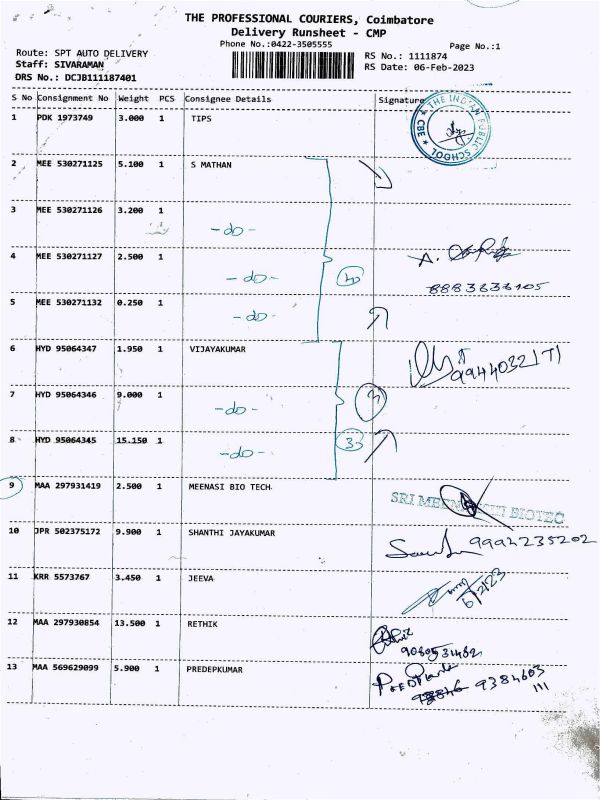 THE PROFESSIONAL COURIERS, Coimbatore
Delivery Runsheet - CMP
Phone No.:0422-3505555
Page No.:1
Route: SPT AUTO DELIVERY
Staff: SIVARAMAN
DRS No.: DCJB111187401
RS No.: 1111874
RS Date: 06-Feb-2023
S No Consignment No Weight PCS Consignee Details Signature
1 PDK 1973749 3.000 1 TIPS
THE INDIAN PUBLIC SCHOOL ★ CBE ★
2 MEE 530271125 5.100 1 S MATHAN
3 MEE 530271126 3.200 1
-do-
4 MEE 530271127 2.500 1
-do-
5 MEE 530271132 0.250 1
-do-
6 HYD 95064347 1.950 1 VIJAYAKUMAR
7 HYD 95064346 9.000 1
-do-
8 HYD 95064345 15.150 1
-do- 3
9 MAA 297931419 2.500 1 MEENASI BIO TECH
10 JPR 502375172 9.900 1 SHANTHI JAYAKUMAR 9994235202
11 KRR 5573767 3.450 1 JEEVA 6/2/23
12 MAA 297930854 13.500 1 RETHIK
13 MAA 569629099 5.900 1 PREDEPKUMAR
9384603
111